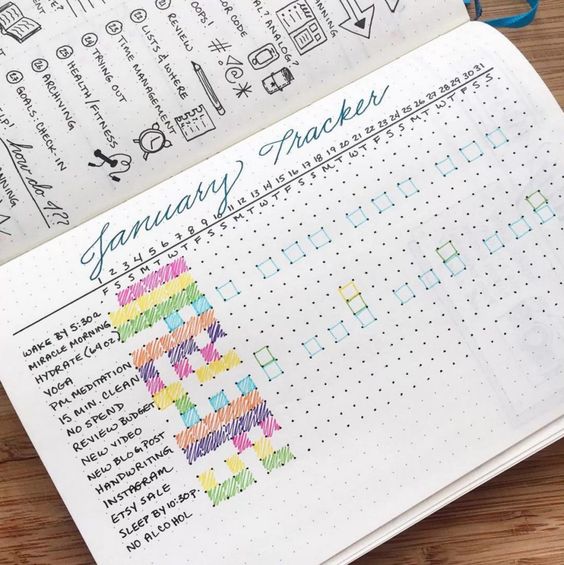 OOPS!
REVIEW
LISTS & WHERE
TIME MANAGEMENT
TRYING OUT
HEALTH/FITNESS
ARCHIVING
GOALS: CHECK-IN
how do I??
January Tracker
1 2 3 4 5 6 7 8 9 10 11 12 13 14 15 16 17 18 19 20 21 22 23 24 25 26 27 28 29 30 31
F S S M T W T F S S M T W T F S S M T W T F S S M T W T F S S
WAKE BY 5:30A
MIRACLE MORNING
HYDRATE (64OZ)
YOGA
PM MEDITATION
15 MIN. CLEAN
NO SPEND
REVIEW BUDGET
NEW VIDEO
NEW BLOG POST
HANDWRITING
INSTAGRAM
ETSY SALE
SLEEP BY 10:30P.
NO ALCOHOL